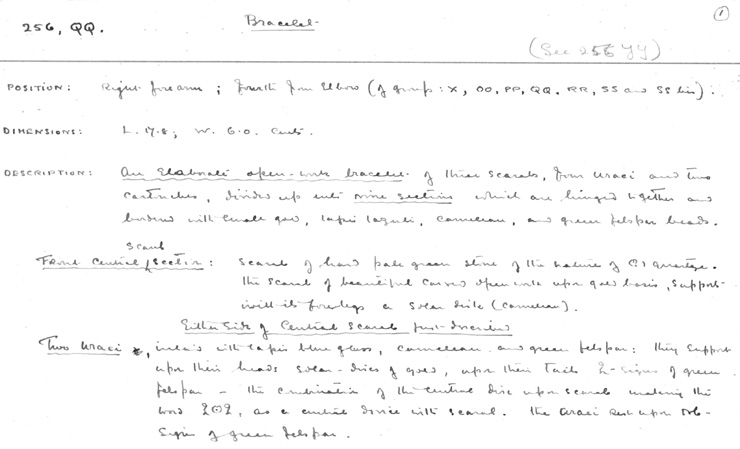 ①
Bracelet.
256, QQ.
(See 256 YY)
POSITION: Right forearm; fourth from Elbow (of group: X, OO, PP, QQ, RR, SS and SS bis).
DIMENSIONS: L. 17.8; W. 6.0. Cents.
DESCRIPTION: An Elaborate open-work bracelet of three scarabs, four uraei and two
cartouches, divided up into nine sections which are hinged together and
bordered with small gold, lapis lazuli, carnelian, and green felspar beads.
Front Central / scarab section: Scarab of hard pale green stone of the nature of quartz.
The scarab of beautiful carved open work upon gold basis, support-
with its forelegs a solar disk (carnelian).
Either Side of Central Scarab just described
Two uraei, inlaid with lapis blue glass, carnelian and green felspar: they support
upon their heads solar-discs of gold, upon their tails signs of green
felspar – the combination of the central disc upon scarab making the
word, as a central device with scarab. The uraei rest upon nb-
signs of green felspar.